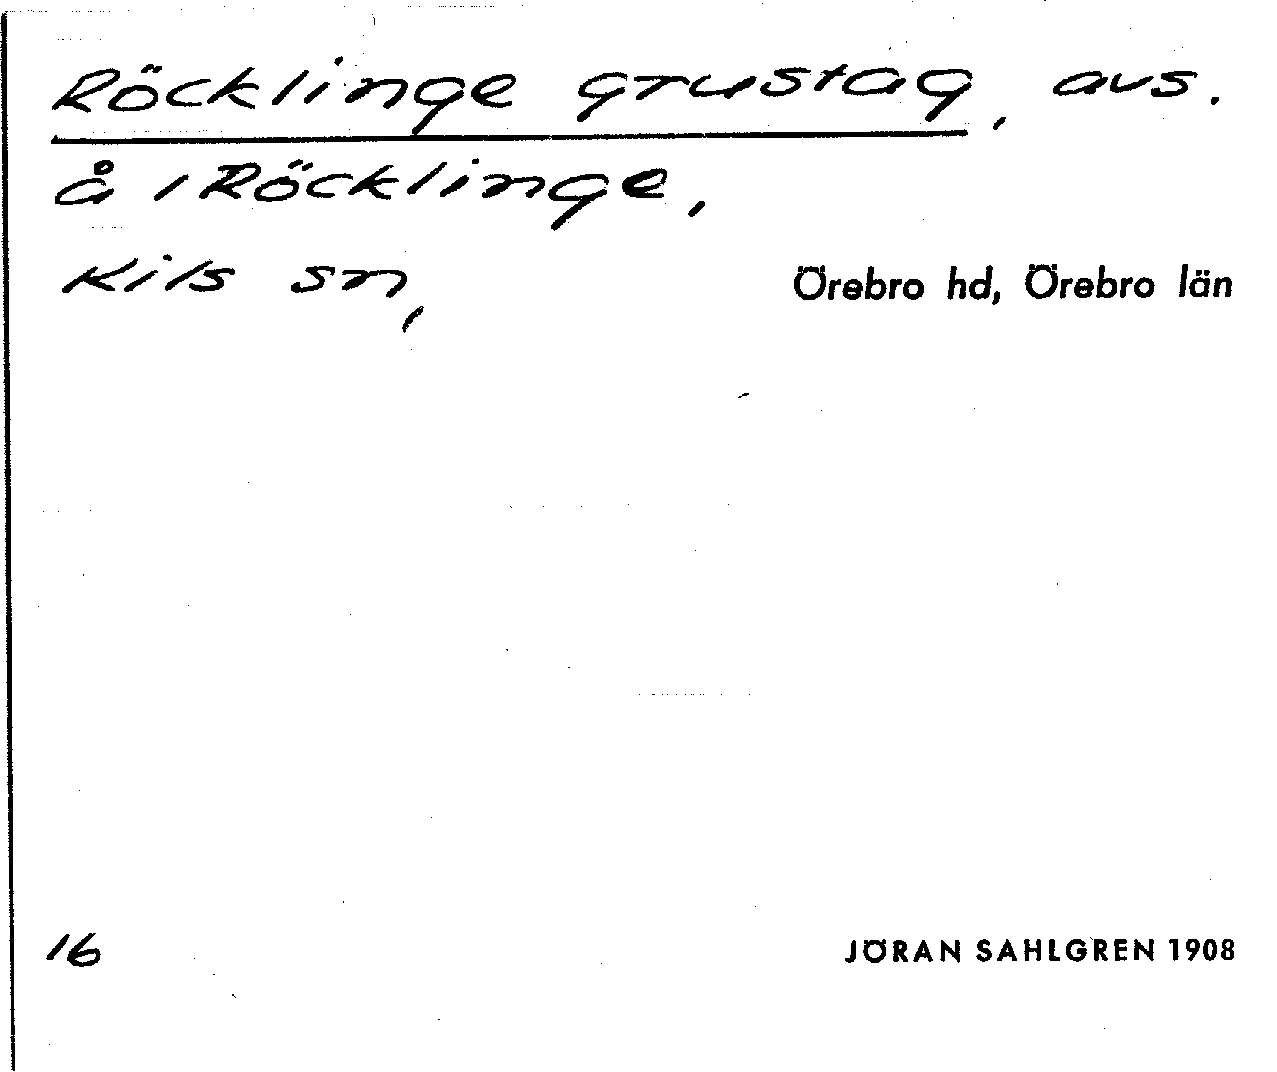 Röcklinge grustag, avs.
å 1 Röcklinge,
Kils sn, Örebro hd, Örebro län
16 JÖRAN SAHLGREN 1908